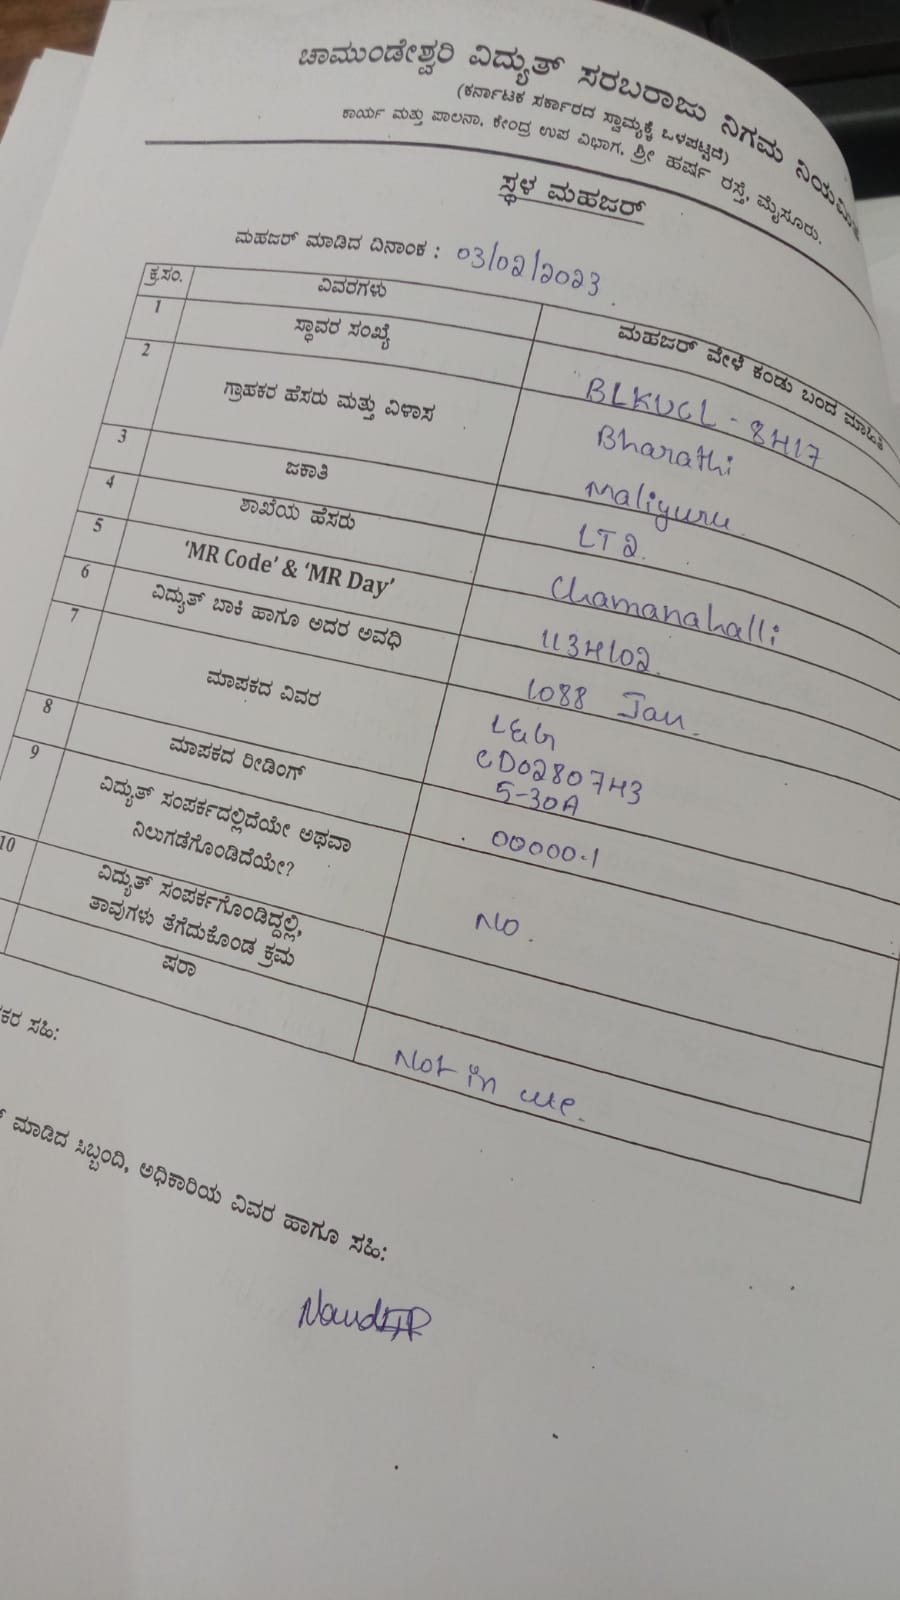 ಚಾಮುಂಡೇಶ್ವರಿ ವಿದ್ಯುತ್ ಸರಬರಾಜು ನಿಗಮ ನಿಯಮಿತ
(ಕರ್ನಾಟಕ ಸರ್ಕಾರದ ಸ್ವಾಮ್ಯಕ್ಕೆ ಒಳಪಟ್ಟಿದೆ)
ಕಾರ್ಯ ಮತ್ತು ಪಾಲನಾ, ಕೇಂದ್ರ ಉಪ ವಿಭಾಗ, ಶ್ರೀ ಹರ್ಷ ರಸ್ತೆ, ಮೈಸೂರು.
ಸ್ಥಳ ಮಹಜರ್
ಮಹಜರ್ ಮಾಡಿದ ದಿನಾಂಕ : 03/02/2023.
ಕ್ರ.ಸಂ. ವಿವರಗಳು ಮಹಜರ್ ವೇಳೆ ಕಂಡು ಬಂದ ಮಾಹಿತಿ
1 ಸ್ಥಾವರ ಸಂಖ್ಯೆ BLKUCL - 8417
2 ಗ್ರಾಹಕರ ಹೆಸರು ಮತ್ತು ವಿಳಾಸ Bharathi
Maliyuru.
3 ಜಕಾತಿ LT2.
4 ಶಾಖೆಯ ಹೆಸರು Chamanahalli
5 'MR Code' & 'MR Day' 1134102.
6 ವಿದ್ಯುತ್ ಬಾಕಿ ಹಾಗೂ ಅದರ ಅವಧಿ 1088 Jan.
7 ಮಾಪಕದ ವಿವರ L&G
CD0280743
5-30A
8 ಮಾಪಕದ ರೀಡಿಂಗ್ 00000.1
9 ವಿದ್ಯುತ್ ಸಂಪರ್ಕದಲ್ಲಿದೆಯೇ ಅಥವಾ
ನಿಲುಗಡೆಗೊಂಡಿದೆಯೇ? NO.
10 ವಿದ್ಯುತ್ ಸಂಪರ್ಕಗೊಂಡಿದ್ದಲ್ಲಿ,
ತಾವುಗಳು ತೆಗೆದುಕೊಂಡ ಕ್ರಮ
ಷರಾ Not in use.
ಸಹಿ:
ಮಾಡಿದ ಸಿಬ್ಬಂದಿ, ಅಧಿಕಾರಿಯ ವಿವರ ಹಾಗೂ ಸಹಿ: